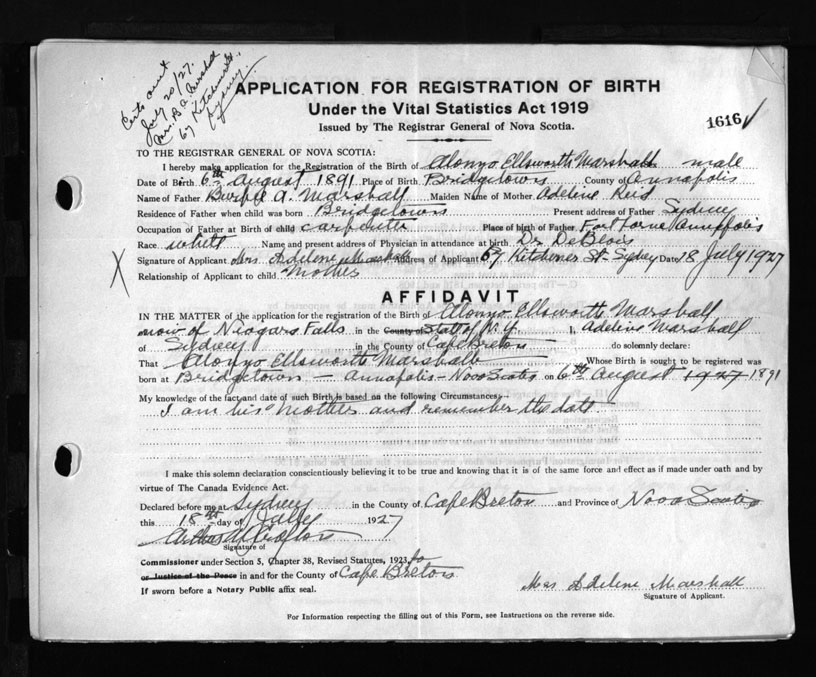 Certs sent
July 20/27.
Mr. B. A. Marshall
67 Kitchener St.,
Sydney.
APPLICATION FOR REGISTRATION OF BIRTH
Under the Vital Statistics Act 1919
Issued by The Registrar General of Nova Scotia.
1616
TO THE REGISTRAR GENERAL OF NOVA SCOTIA:
I hereby make application for the Registration of the Birth of Alonzo Ellsworth Marshall male
Date of Birth 6th August 1891 Place of Birth Bridgetown County of Annapolis
Name of Father A. Marshall Maiden Name of Mother Adeline Reid
Residence of Father when child was born Bridgetown Present address of Father Sydney
Occupation of Father at Birth of child carpenter Place of birth of Father Annapolis
Race white Name and present address of Physician in attendance at birth Dr DeBlois
Signature of Applicant Mrs Adelene Marshall Address of Applicant 67 Kitchener St- Sydney Date 18 July 1927
Relationship of Applicant to child Mother
X
AFFIDAVIT
IN THE MATTER of the application for the registration of the Birth of Alonzo Ellsworth Marshall
now of Niagara Falls in the County of State of N.Y. I, Adeline Marshall
of Sydney in the County of Cape Breton do solemnly declare:
That Alonzo Ellsworth Marshall Whose Birth is sought to be registered was
born at Bridgetown - Annapolis - Nova Scotia on 6th August 1927 1891
My knowledge of the fact and date of such Birth is based on the following Circumstances:-
I am his Mother and remember the date.
I make this solemn declaration conscientiously believing it to be true and knowing that it is of the same force and effect as if made under oath and by
virtue of The Canada Evidence Act.
Declared before me at Sydney in the County of Cape Breton and Province of Nova Scotia
this 18th day of July 1927
Signature of
Commissioner under Section 5, Chapter 38, Revised Statutes, 1923,
or Justice of the Peace in and for the County of Cape Breton
If sworn before a Notary Public affix seal.
Mrs Adelene Marshall
Signature of Applicant.
For Information respecting the filling out of this Form, see Instructions on the reverse side.